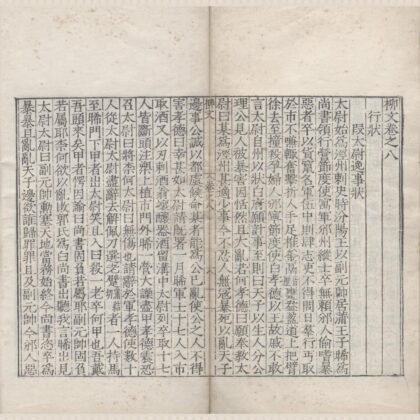 柳文卷之八
行狀
段太尉逸事狀
太尉始為涇州刺史時汾陽王以副元帥居蒲王子晞為
尚書領行營節度使寓軍邠州縱士卒無賴邠人偷嗜暴
惡者卒以貨竄名軍伍中則肆志吏不得問日羣行丐取
於市不嗛輒奮擊折人手足椎釜鬲甕盎盈道上袒臂
徐去至撞殺孕婦人邠寧節度使白孝德以王故戚不敢
言太尉自州以狀白府願計事至則曰天子以生人付公
理公見人被暴害因恬然且大亂若何孝德曰願奉教太
尉曰某為涇州甚適少事今不忍人無寇暴死以亂天子
邊事公誠以都虞候命某者能為公已亂使公之人不得
害孝德曰幸甚如太尉請既署一月晞軍士十七人入市
取酒又以刃刺酒翁壞釀器酒流溝中太尉列卒取十七
人皆斷頭注槊上植市門外晞一營大譟盡甲孝德震恐
召太尉曰將柰何太尉曰無傷也請辭於軍孝德使數十
人從太尉太尉盡辭去解佩刀選老躄者一人持馬
至晞門下甲者出太尉笑且入曰殺一老卒何甲也吾戴
吾頭來矣甲者愕因諭曰尚書固負若屬耶副元帥固負
若屬耶柰何欲以亂敗郭氏為白尚書出聽我言晞出見
太尉太尉曰副元帥勳塞天地當務始終今尚書恣卒為
暴暴且亂亂天子邊欲誰歸罪罪且及副元帥今邠人惡